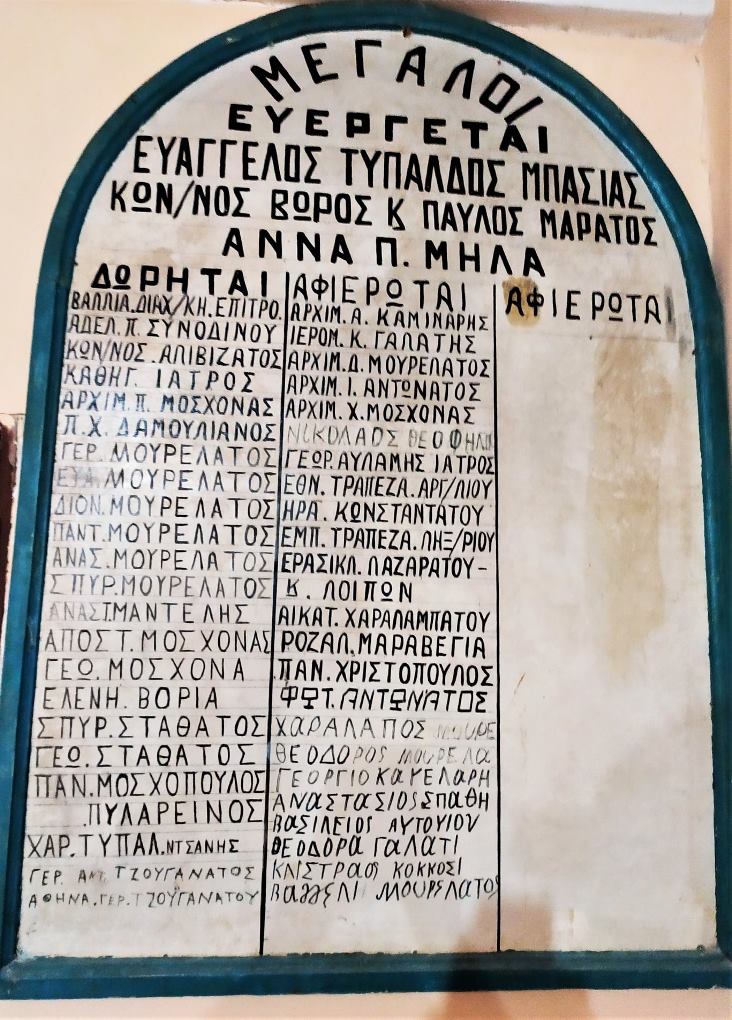 ΜΕΓΑΛΟΙ
ΕΥΕΡΓΕΤΑΙ
ΕΥΑΓΓΕΛΟΣ ΤΥΠΑΛΔΟΣ ΜΠΑΣΙΑΣ
ΚΩΝ/ΝΟΣ ΒΩΡΟΣ Κ ΠΑΥΛΟΣ ΜΑΡΑΤΟΣ
ΑΝΝΑ Π. ΜΗΛΑ
ΔΩΡΗΤΑΙ
ΒΑΛΛΙΑ.ΔΙΑΧ/ΚΗ.ΕΠΙΤΡΟ.
ΑΔΕΛ.Π.ΣΥΝΟΔΙΝΟΥ
ΚΩΝ/ΝΟΣ.ΑΛΙΒΙΖΑΤΟΣ
ΚΑΘΗΓ. ΙΑΤΡΟΣ
ΑΡΧΙΜ.Π. ΜΟΣΧΟΝΑΣ
Π.Χ. ΔΑΜΟΥΛΙΑΝΟΣ
ΓΕΡ. ΜΟΥΡΕΛΑΤΟΣ
ΜΟΥΡΕΛΑΤΟΣ
ΔΙΟΝ.ΜΟΥΡΕΛΑΤΟΣ
ΠΑΝΤ.ΜΟΥΡΕΛΑΤΟΣ
ΑΝΑΣ.ΜΟΥΡΕΛΑΤΟΣ
ΣΠΥΡ.ΜΟΥΡΕΛΑΤΟΣ
ΑΝΑΣΤ.ΜΑΝΤΕΛΗΣ
ΑΠΟΣΤ.ΜΟΣΧΟΝΑΣ
ΓΕΩ.ΜΟΣΧΟΝΑ
ΕΛΕΝΗ.ΒΟΡΙΑ
ΣΠΥΡ.ΣΤΑΘΑΤΟΣ
ΓΕΩ.ΣΤΑΘΑΤΟΣ
ΠΑΝ.ΜΟΣΧΟΠΟΥΛΟΣ
.ΠΥΛΑΡΕΙΝΟΣ
ΧΑΡ.ΤΥΠΑΛ.ΝΤΣΑΝΗΣ
ΓΕΡ. ΑΝΤ ΤΖΟΥΓΑΝΑΤΟΣ
ΑΘΗΝΑ.ΓΕΡ.ΤΖΟΥΓΑΝΑΤΟΥ
ΑΦΙΕΡΩΤΑΙ
ΑΡΧΙΜ.Α. ΚΑΜΙΝΑΡΗΣ
ΙΕΡΟΜ.Κ.ΓΑΛΑΤΗΣ
ΑΡΧΙΜ.Δ.ΜΟΥΡΕΛΑΤΟΣ
ΑΡΧΙΜ.Ι.ΑΝΤΩΝΑΤΟΣ
ΑΡΧΙΜ.Χ.ΜΟΣΧΟΝΑΣ
ΝΙΚΟΛΑΟΣ
ΓΕΩΡ.ΑΥΛΑΜΗΣ ΙΑΤΡΟΣ
ΕΘΝ. ΤΡΑΠΕΖΑ.ΑΡΓ/ΛΙΟΥ
ΗΡΑ. ΚΩΝΣΤΑΝΤΑΤΟΥ
ΕΜΠ. ΤΡΑΠΕΖΑ.ΛΗΞ/ΡΙΟΥ
ΕΡΑΣΙΚΛ.ΛΑΖΑΡΑΤΟΥ-
Κ. ΛΟΙΠΩΝ
ΑΙΚΑΤ.ΧΑΡΑΛΑΜΠΑΤΟΥ
ΡΟΖΑΛ.ΜΑΡΑΒΕΓΙΑ
ΠΑΝ.ΧΡΙΣΤΟΠΟΥΛΟΣ
ΦΩΤ.ΑΝΤΩΝΑΤΟΣ
ΧΑΡΑΛΑΠΟΣ ΜΟΥΡΕ
ΘΕΟΔΟΡΟΣ ΜΟΥΡΕΛΑ
ΓΕΟΡΓΙΟ ΚΑΥΕΛΑΡΗ
ΑΝΑΣΤΑΣΙΟΣ ΣΠΑΘΗ
ΒΑΣΙΛΕΙΟΣ ΑΥΤΟΥΙΟΥ
ΘΕΟΔΟΡΑ ΓΑΛΑΤΙ
ΚΟΚΚΟΣΙ
ΜΟΥΡΕΛΑΤΟΣ
ΑΦΙΕΡΩΤΑΙ